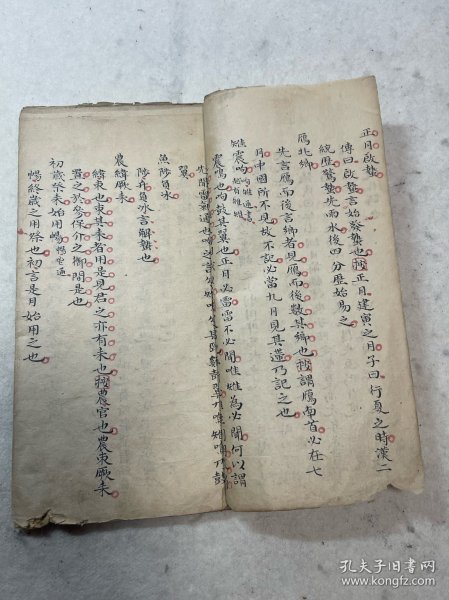 正月啟蟄
傳曰啟蟄言始發蟄也 正月建寅之月子曰行夏之時漢二
統歷驚蟄先雨水後四分歷始易之
鴈北鄉
先言鴈而後言鄉者見鴈而後數其鄉也 謂鴈南首必在七
月中國所不見故不記必當九月見其遰乃記之也
雉震呴
震鳴也呴鼓其翼也正月必雷雷不必聞唯雉為必聞何以謂
翼
魚陟負冰
陟升負冰言解蟄也
農緯厥耒
緯束也束其耒者用是見君之亦有耒也 農官也農束厥耒
置之於參保介之御間是也
初歲祭耒始用暢
暢終歲之用祭也初言是月始用之也
孔夫子旧书网
www.kongfz.com